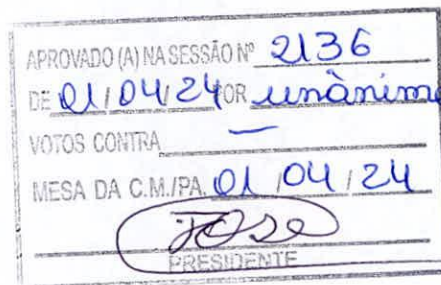 APROVADO (A) NA SESSÃO Nº 2136
DE 01/04/24 POR unânime
VOTOS CONTRA —
MESA DA C.M./PA. 01/04/24
José
PRESIDENTE